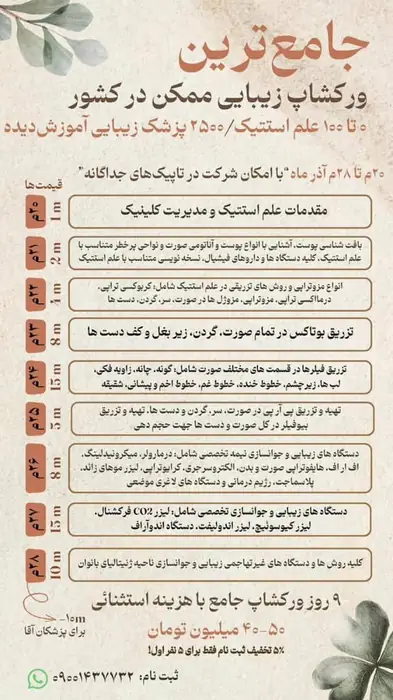 جامع‌ترین
ورکشاپ زیبایی ممکن در کشور
۰ تا ۱۰۰ علم استتیک/ ۲۵۰۰ پزشک زیبایی آموزش‌دیده
۲۰م تا ۲۸م آذر ماه "با امکان شرکت در تاپیک‌های جداگانه"
قیمت‌ها
۲۰م
1 m
مقدمات علم استتیک و مدیریت کلینیک
۲۱م
2 m
بافت شناسی پوست، آشنایی با انواع پوست و آناتومی صورت و نواحی پرخطر متناسب با
علم استتیک، کلیه دستگاه ها و داروهای فیشیال، نسخه نویسی متناسب با علم استتیک
۲۲م
4 m
انواع مزوتراپی و روش های تزریقی در علم استتیک شامل: کربوکسی تراپی،
درمااکسی تراپی، مزوتراپی، مزوژل ها در صورت، سر، گردن، دست ها
۲۳م
8 m
تزریق بوتاکس در تمام صورت، گردن، زیر بغل و کف دست ها
۲۴م
15 m
تزریق فیلرها در قسمت های مختلف صورت شامل: گونه، چانه، زاویه فکی،
لب ها، زیرچشم، خطوط خنده، خطوط غم، خطوط اخم و پیشانی، شقیقه
۲۵م
5 m
تهیه و تزریق پی آر پی در صورت، سر، گردن و دست ها، تهیه و تزریق
بیوفیلر در کل صورت و دست ها جهت حجم دهی
۲۶م
8 m
دستگاه های زیبایی و جوانسازی نیمه تخصصی شامل: درمارولر، میکرونیدلینگ،
اف ار اف، هایفوتراپی صورت و بدن، الکتروسرجری، کرایوتراپی، لیزر موهای زائد،
پلاسماجت، رژیم درمانی و دستگاه های لاغری موضعی
۲۷م
15 m
دستگاه های زیبایی و جوانسازی تخصصی شامل: لیزر CO2 فرکشنال،
لیزر کیوسوئیچ، لیزر اندولیفت، دستگاه اندوآراف
۲۸م
10 m
کلیه روش ها و دستگاه های غیرتهاجمی زیبایی و جوانسازی ناحیه ژنیتالیای بانوان
۹ روز ورکشاپ جامع با هزینه استثنائی
۴۰-۵۰ میلیون تومان
-10m
برای پزشکان آقا
۵٪ تخفیف ثبت نام فقط برای ۵ نفر اول!
ثبت نام: ۰۹۰۰۱۴۳۷۷۳۲